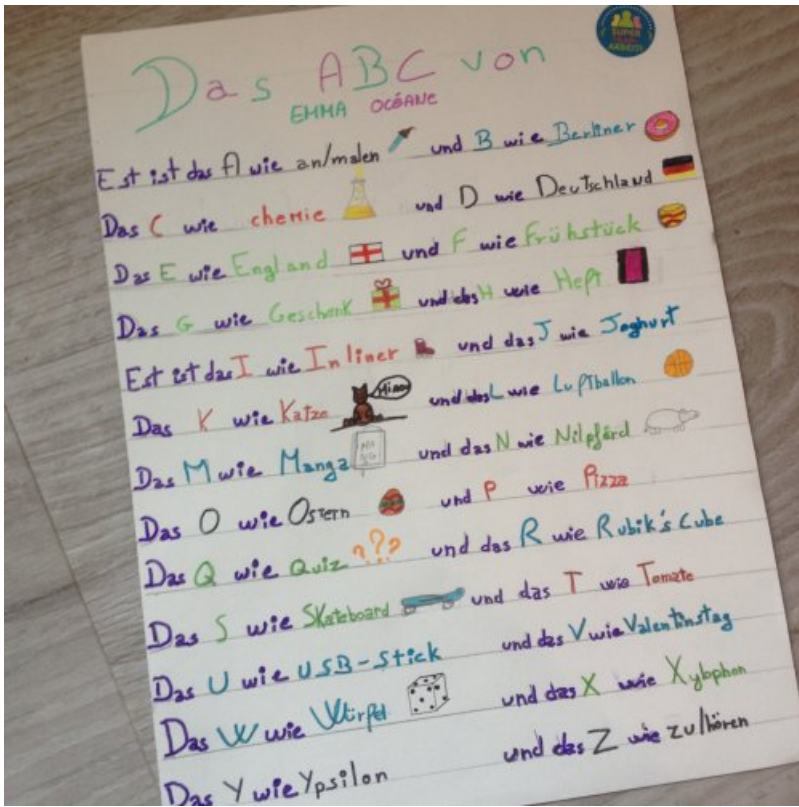 SUPER
TEAM
ARBEIT!
Das ABC von
EMMA OCÉANE
Est ist das A wie an/malen und B wie Berliner
Das C wie chemie und D wie Deutschland
Das E wie England und F wie Frühstück
Das G wie Geschenk und das H wie Heft
Est ist das I wie Inliner und das J wie Joghurt
Das K wie Katze Miaou und das L wie Luftballon
Das M wie Manga MANG und das N wie Nilpférd
Das O wie Ostern und P wie Pizza
Das Q wie Quiz ??? und das R wie Rubik's Cube
Das S wie Skateboard und das T wie Tomate
Das U wie USB-Stick und das V wie Valentinstag
Das W wie Würfel und das X wie Xylophon
Das Y wie Ypsilon und das Z wie zu/hören